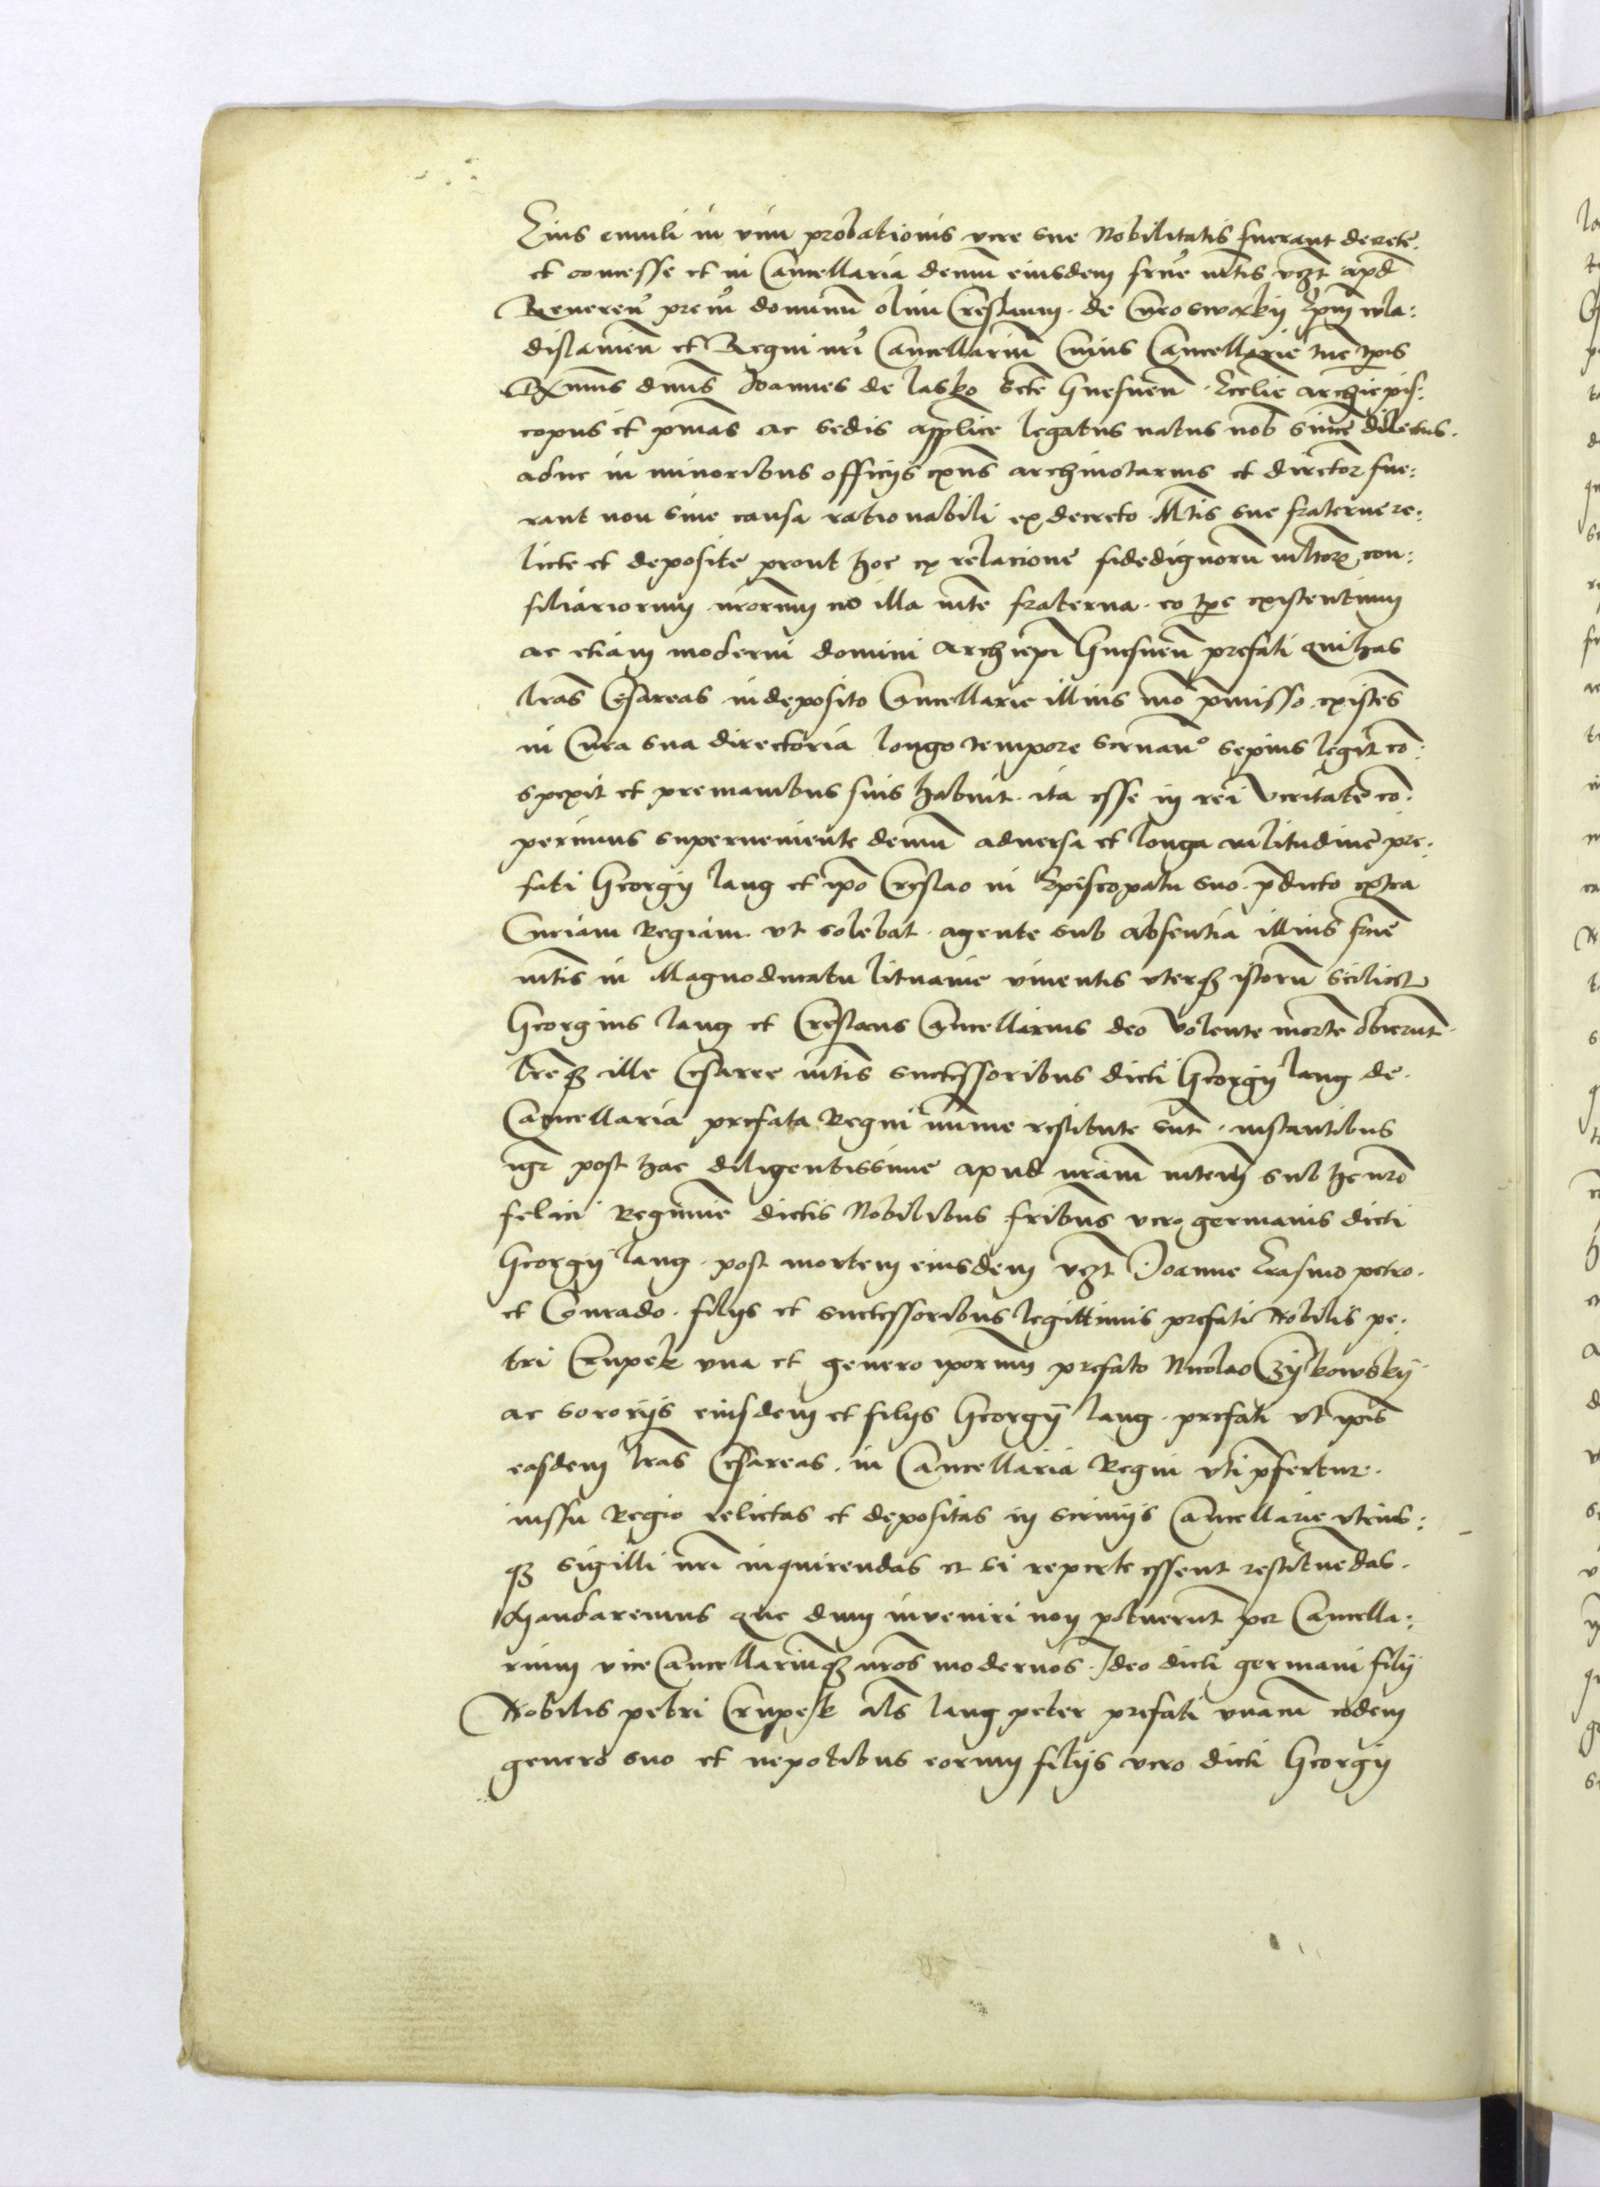 Eius emuli in vim probationis vere sue Nobilitatis fuerant decrete
et concesse et in Cancellaria demum eiusdem frne mtis vȝt apd
Reveren prem dominum olim Creslaum de Curoswaky Epm wla:
dislamen et Regni nri Cancellarium Cuius Cancellarie tuc tpis
Rmus dnus Joannes de lasko scte Gnesnen Ecclie archiepis:
copus et pmas ac sedis applice legatus natus nob sincè dilectus
adhuc in minoribus officijs exns archinotarius et director fue:
rant non sine causa rationabili ex decreto Mtis sue fraterne re:
licte et deposite prout hoc ex relacione fidedignorum multorȝ con:
siliariorum nrorum no illa mte fraterna eo tpe existentium
ac etiam moderni domini archiepi Gnesnen prefati qui has
lras Cesareas in deposito Cancellarie illius mo pmisso existes
in Cura sua directoria longo tempore seruan sepius legit co:
spexit et premanibus suis habuit ita esse in rei Veritate co:
perimus superueniente demum aduersa et longa valitudine pre:
fati Georgij lang et ipo Creslao in Episcopatu suo pdicto extra
Curiam Regiam vt solebat agente sub absentia illius frne
mtis in Magnoducatu lituanie viuentis uterqȝ istorum scilicet
Georgius lang et Creslaus Cancellarius deo Volente morte obierunt
lreqȝ ille Cesaree mtis successoribus dicti Georgij lang de
Cancellaria prefata Regni mime restitute sunt instantibus
igr post hac diligentissime apud nram mtem sub hc nro
felici Regimine dictis Nobilibus fribus vero germanis dicti
Georgij lang post mortem eiusdem vȝt Joanne Erasmo petro
et Conrado filijs et successoribus legittimis prefati Nobilis pe:
tri Crupek vna et genero iporum prefato Nicolao Czijkowskij
ac sororijs eiusdem et filijs Georgij lang prefati vt ipis
easdem lras Cesareas in Cancellaria Regni vti pfertur
iussu Regio relictas et depositas in scrinijs Cancellarie vtrius:
qȝ sigilli nri inquirendas et si reperte essent restituedas
Mandaremus que dum inveniri non potuerunt per Cancella:
rium vice Cancellariumqȝ nros modernos Ideo dicti germani filij
Nobilis petri Crupek als lang peter prefati vnacum eodem
genero suo et nepotibus eorum filijs vero dicti Georgij